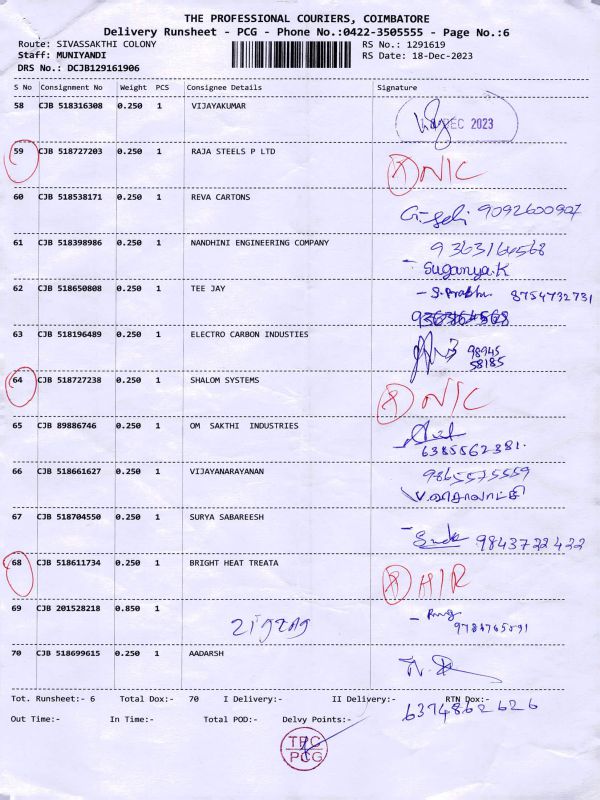 THE PROFESSIONAL COURIERS, COIMBATORE
Delivery Runsheet - PCG - Phone No.:0422-3505555 - Page No.:6
Route: SIVASSAKTHI COLONY RS No.: 1291619
Staff: MUNIYANDI RS Date: 18-Dec-2023
DRS No.: DCJB129161906
S No Consignment No Weight PCS Consignee Details Signature
58 CJB 518316308 0.250 1 VIJAYAKUMAR
DEC 2023
59 CJB 518727203 0.250 1 RAJA STEELS P LTD
N/C
60 CJB 518538171 0.250 1 REVA CARTONS
9092600907
61 CJB 518398986 0.250 1 NANDHINI ENGINEERING COMPANY
9363164568
Suganya.K
62 CJB 518650808 0.250 1 TEE JAY
- S. Prabhu 8754732731
63 CJB 518196489 0.250 1 ELECTRO CARBON INDUSTIES
98945
58185
64 CJB 518727238 0.250 1 SHALOM SYSTEMS
N/C
65 CJB 89886746 0.250 1 OM SAKTHI INDUSTRIES
6385562381.
66 CJB 518661627 0.250 1 VIJAYANARAYANAN
9865575559
67 CJB 518704550 0.250 1 SURYA SABAREESH
9843722422
68 CJB 518611734 0.250 1 BRIGHT HEAT TREATA
H/R
69 CJB 201528218 0.850 1
zigzag
70 CJB 518699615 0.250 1 AADARSH
Tot. Runsheet:- 6 Total Dox:- 70 I Delivery:- II Delivery:- RTN Dox:-
6374862626
Out Time:- In Time:- Total POD:- Delvy Points:-
TPC
PCG